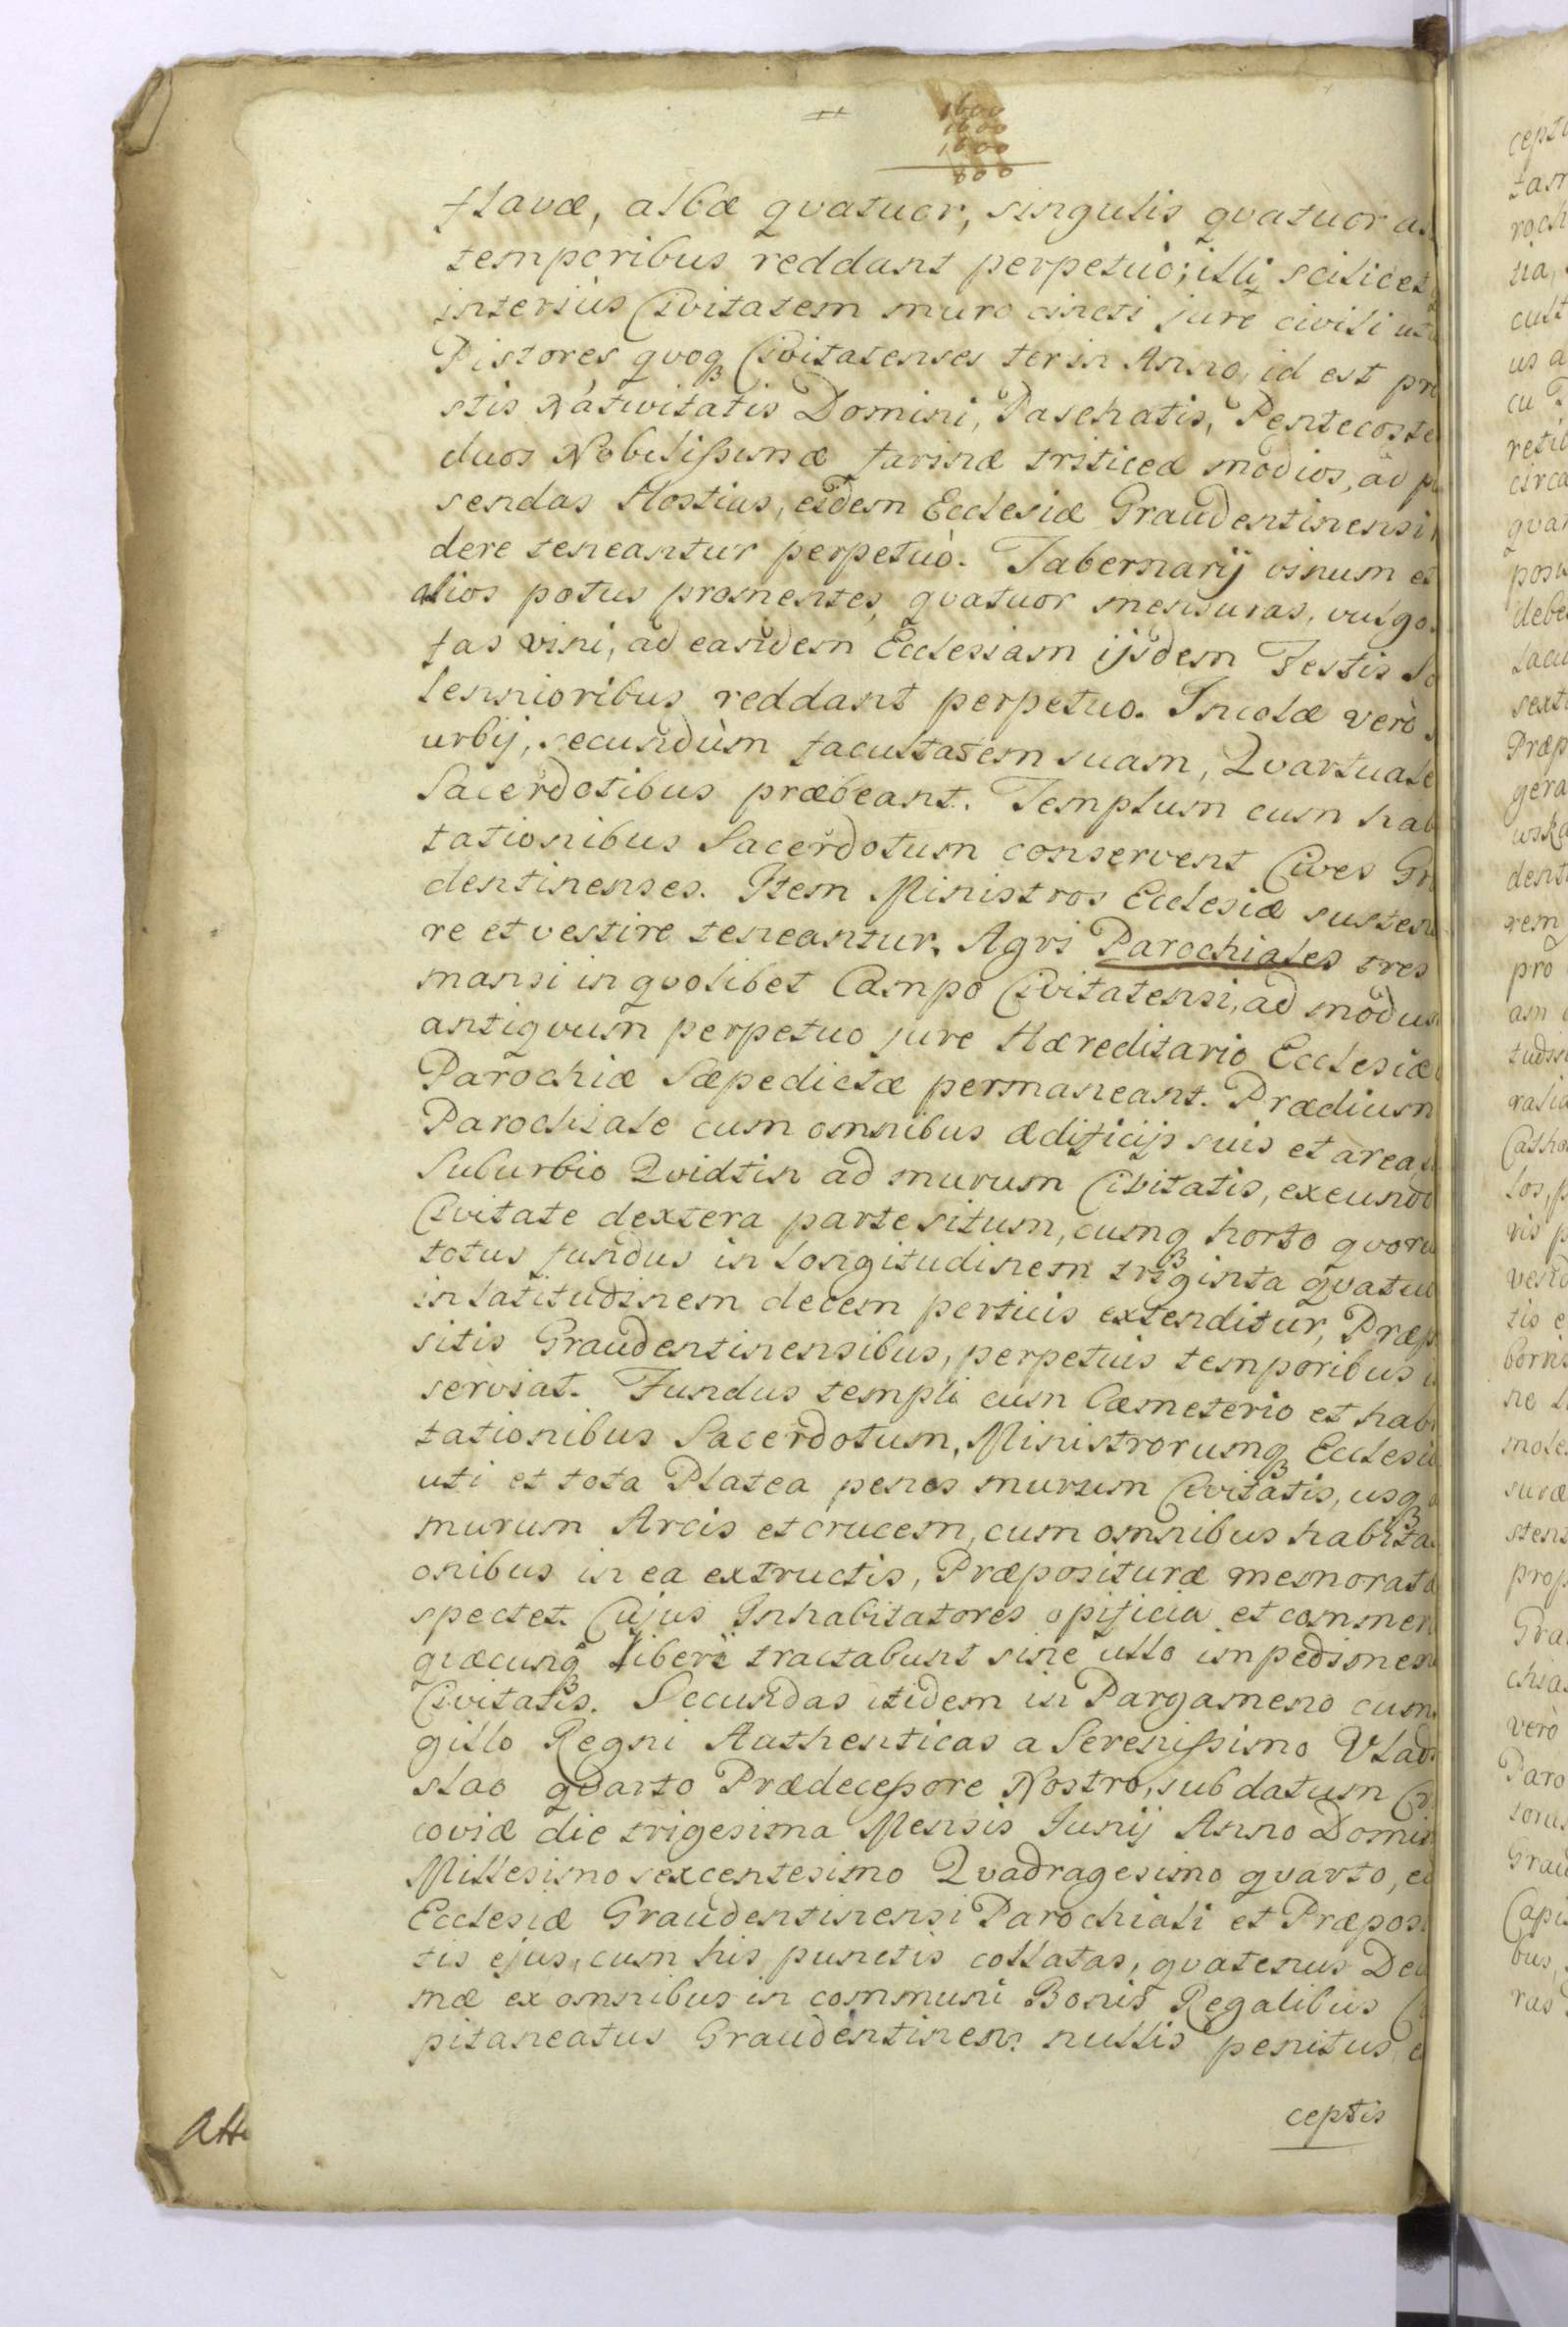 1600
1600
1600
800
flavæ, albæ qvatuor, singulis qvatuor an
temporibus reddant perpetuò; illi scilicet
interiùs Civitatem muro cincti jure civili ut
Pistores qvoqꝫ Civitatenses ter in Anno, id est pro
stis Nativitatis Domini, Paschatis, Pentecoste
duos Nobilissimæ farinæ triticeæ modios, ad p
sendas Hostias, eidem Ecclesiæ Graudentinensi
dere teneantur perpetuò. Tabernarij vinum et
alios potus promentes, qvatuor mensuras, vulgo
tas vini, ad eandem Ecclesiam ijsdem Festis So
lennioribus reddant perpetuo. Incolæ verò
urbij, secundùm facultatem suam, Qvartuale
Sacerdotibus præbeant. Templum cum hab
tationibus Sacerdotum conservent Cives Gr
dentinenses. Item Ministros Ecclesiæ susten
re et vestire teneantur. Agri Parochiales tres
mansi in qvolibet Campo Civitatensi, ad modu
antiqvum perpetuo jure Hæreditario Ecclesiæ
Parochiæ Sæpedictæ permaneant. Prædium
Parochiale cum omnibus ædificijs suis et area
Suburbio Qvidtin ad murum Civitatis, exeundo
Civitate dextera parte situm, cumqꝫ horto qvoru
totus fundus in longitudinem triginta qvatu
in latitudinem decem perticis extenditur, Præp
sitis Graudentinensibus, perpetuis temporibus
serviat. Fundus templi cum Cæmeterio et habi
tationibus Sacerdotum, Ministrorumqꝫ Ecclesiæ
uti et tota Platea penes murum Civitatis, usqꝫ
murum Arcis et crucem, cum omnibus habita
onibus in ea extructis, Præposituræ memorata
spectet. Cujus Inhabitatores opificia et commer
qvæcunqꝫ liberè tractabunt sine ullo impedimen
Civitatis. Secundas itidem in Pargameno cum
gillo Regni Authenticas a Serenissimo Vladi
slao qvarto Prædecessore Nostro, sub datum Cr
coviæ die trigesima Mensis Junij Anno Domin
Millesimo sexcentesimo Qvadragesimo qvarto, ei
Ecclesiæ Graudentinensi Parochiali et Præposi
tis ejus, cum his punctis collatas, qvatenus Deci
mæ ex omnibus in communi Bonis Regalibus C
pitaneatus Graudentinen: nullis penitus
ceptis
Atte